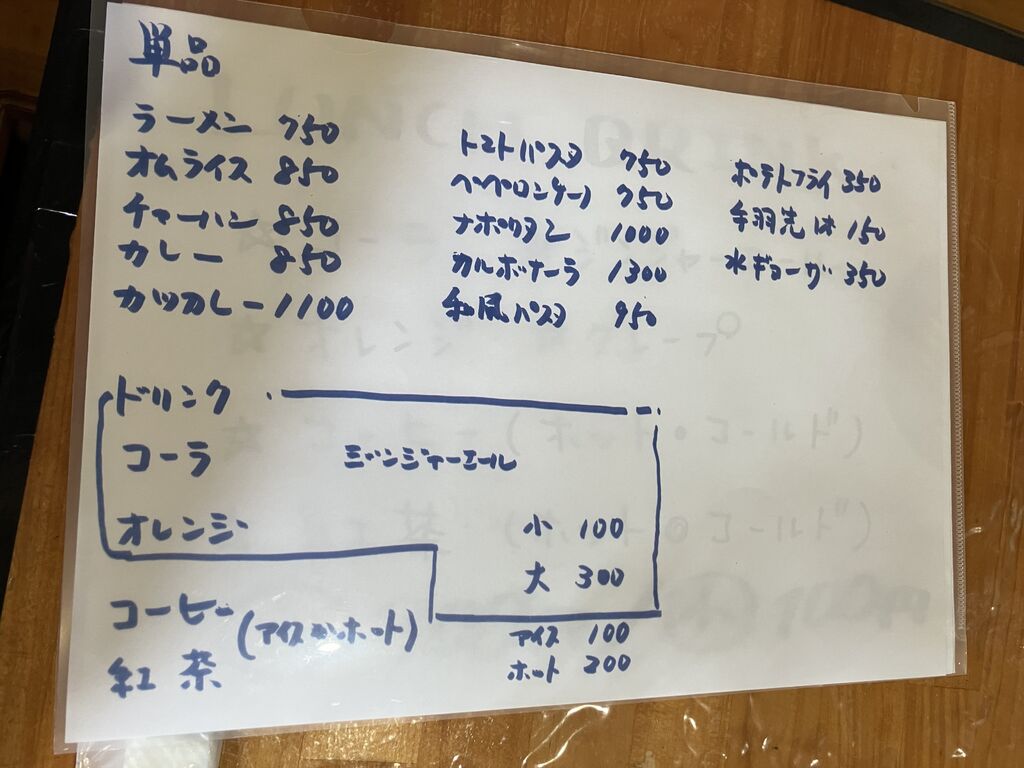 単品
ラーメン 750
オムライス 850
チャーハン 850
カレー 850
カツカレー 1100
トマトパスタ 750
ペペロンチーノ 750
ナポリタン 1000
カルボナーラ 1300
和風パスタ 950
ポテトフライ 350
手羽先1本 150
水ギョーザ 350
ドリンク
コーラ ジンジャーエール
オレンジ 小 100
大 300
コーヒー (アイスorホット)
紅茶
アイス 100
ホット 200